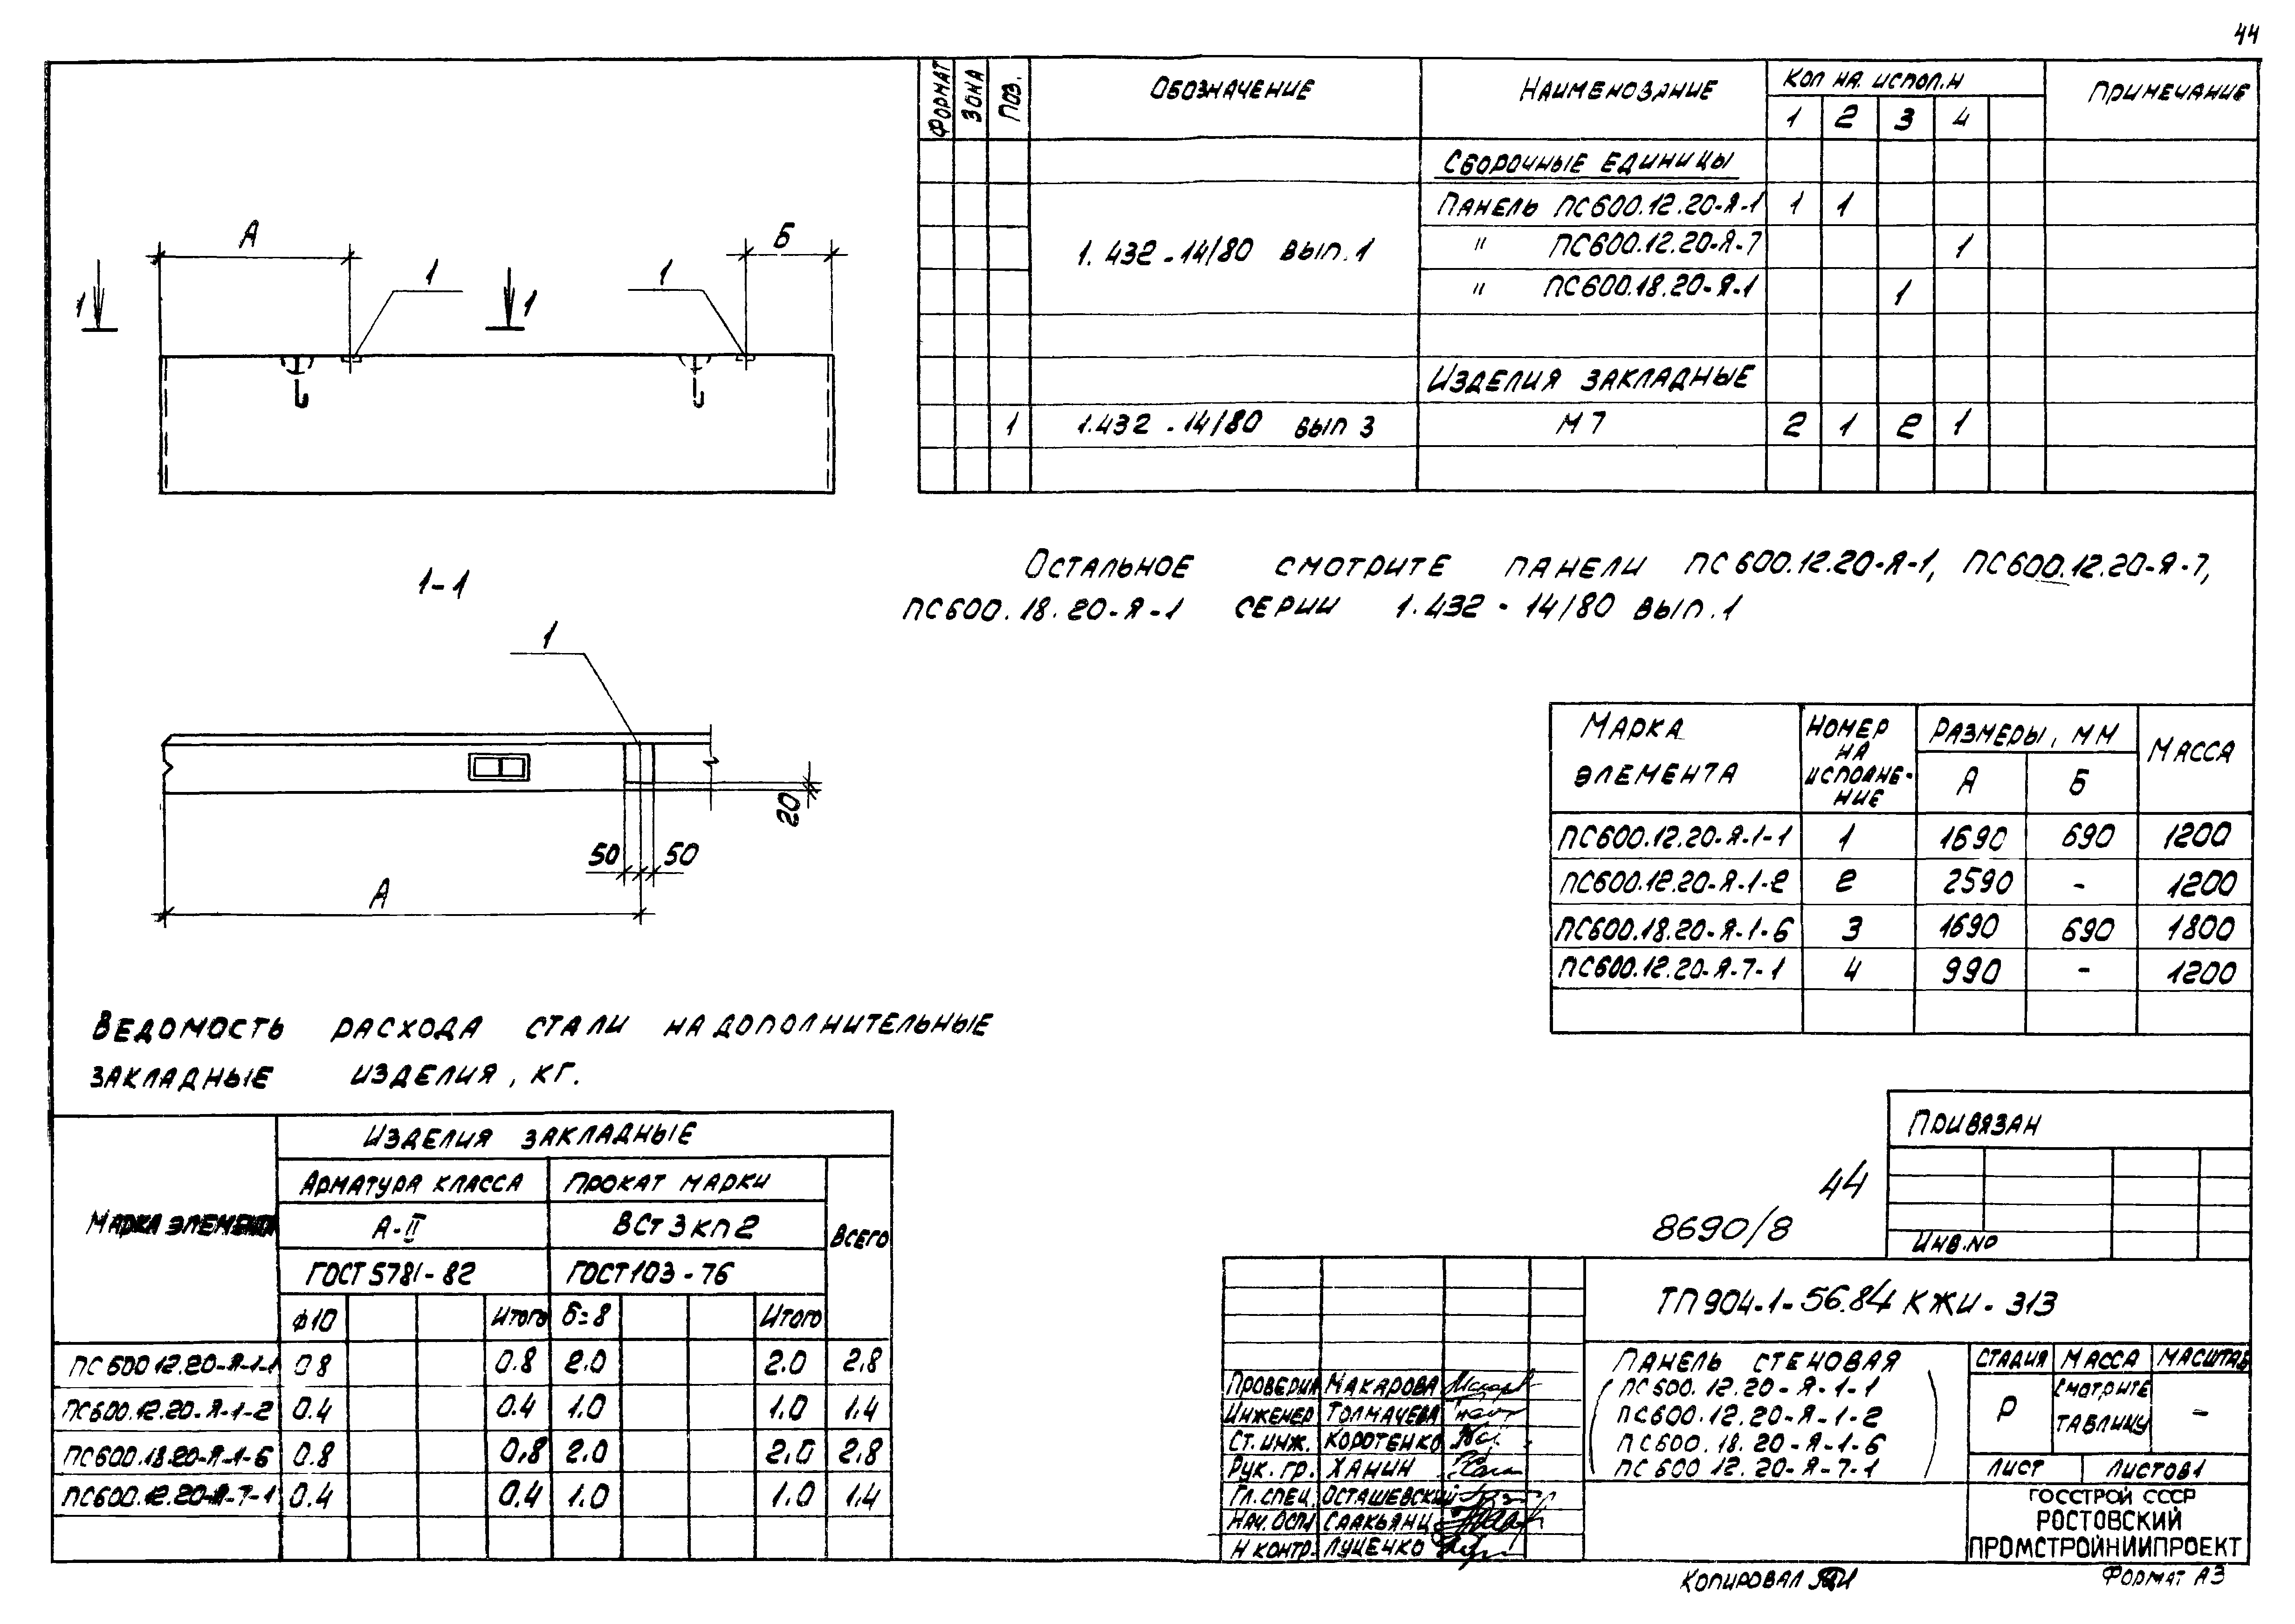 44
ФОРМАТ
ЗОНА
ПОЗ.
ОБОЗНАЧЕНИЕ
НАИМЕНОВАНИЕ
КОЛ НА ИСПОЛ.Н
ПРИМЕЧАНИЕ
1 2 3 4
СБОРОЧНЫЕ ЕДИНИЦЫ
ПАНЕЛЬ ПС600.12.20-Я-1 1 1
1.432-14/80 ВЫП.1
" ПС600.12.20-Я-7 1
" ПС600.18.20-Я-1 1
ИЗДЕЛИЯ ЗАКЛАДНЫЕ
1 1.432-14/80 ВЫП 3 М7 2 1 2 1
А Б
1 1 1 1
1-1
1
20
50 50
А
ОСТАЛЬНОЕ СМОТРИТЕ ПАНЕЛИ ПС600.12.20-Я-1, ПС600.12.20-Я-7,
ПС600.18.20-Я-1 СЕРИИ 1.432-14/80 ВЫП.1
МАРКА ЭЛЕМЕНТА
НОМЕР НА ИСПОЛНЕ-НИЕ
РАЗМЕРЫ, ММ
МАССА
А Б
ПС600.12.20-Я-1-1 1 1690 690 1200
ПС600.12.20-Я-1-2 2 2590 - 1200
ПС600.18.20-Я-1-6 3 1690 690 1800
ПС600.12.20-Я-7-1 4 990 - 1200
ВЕДОМОСТЬ РАСХОДА СТАЛИ НА ДОПОЛНИТЕЛЬНЫЕ
ЗАКЛАДНЫЕ ИЗДЕЛИЯ, КГ.
МАРКА ЭЛЕМЕНТА
ИЗДЕЛИЯ ЗАКЛАДНЫЕ
АРМАТУРА КЛАССА ПРОКАТ МАРКИ
А-II ВСт3кп2
ВСЕГО
ГОСТ 5781-82 ГОСТ 103-76
ф10 ИТОГО Б=8 ИТОГО
ПС600 12.20-Я-1-1 0.8 0.8 2.0 2.0 2.8
ПС600.12.20-Я-1-2 0.4 0.4 1.0 1.0 1.4
ПС600.18.20-Я-1-6 0.8 0,8 2.0 2.0 2.8
ПС600.12.20-Я-7-1 0.4 0.4 1.0 1.0 1.4
ПРИВЯЗАН
ИНВ.NО
44
8690/8
ТП904-1-56.84 КЖИ-313
ПАНЕЛЬ СТЕНОВАЯ
(ПС600.12.20-Я-1-1
ПС600.12.20-Я-1-2
ПС600.18.20-Я-1-6
ПС600 12.20-Я-7-1)
СТАДИЯ МАССА МАСШТАБ
Р СМОТРИТЕ ТАБЛИЦУ -
ЛИСТ ЛИСТОВ 1
ГОССТРОЙ СССР
РОСТОВСКИЙ
ПРОМСТРОЙНИИПРОЕКТ
ПРОВЕРИЛ МАКАРОВА
ИНЖЕНЕР ТОЛМАЧЕВА
СТ.ИНЖ. КОРОТЕНКО
РУК.ГР. ХАНИН
ГЛ.СПЕЦ. ОСТАШЕВСКИЙ
НАЧ.ОСП1 СААКЬЯНЦ
Н КОНТР. ЛУЦЕНКО
КОПИРОВАЛ
ФОРМАТ А3